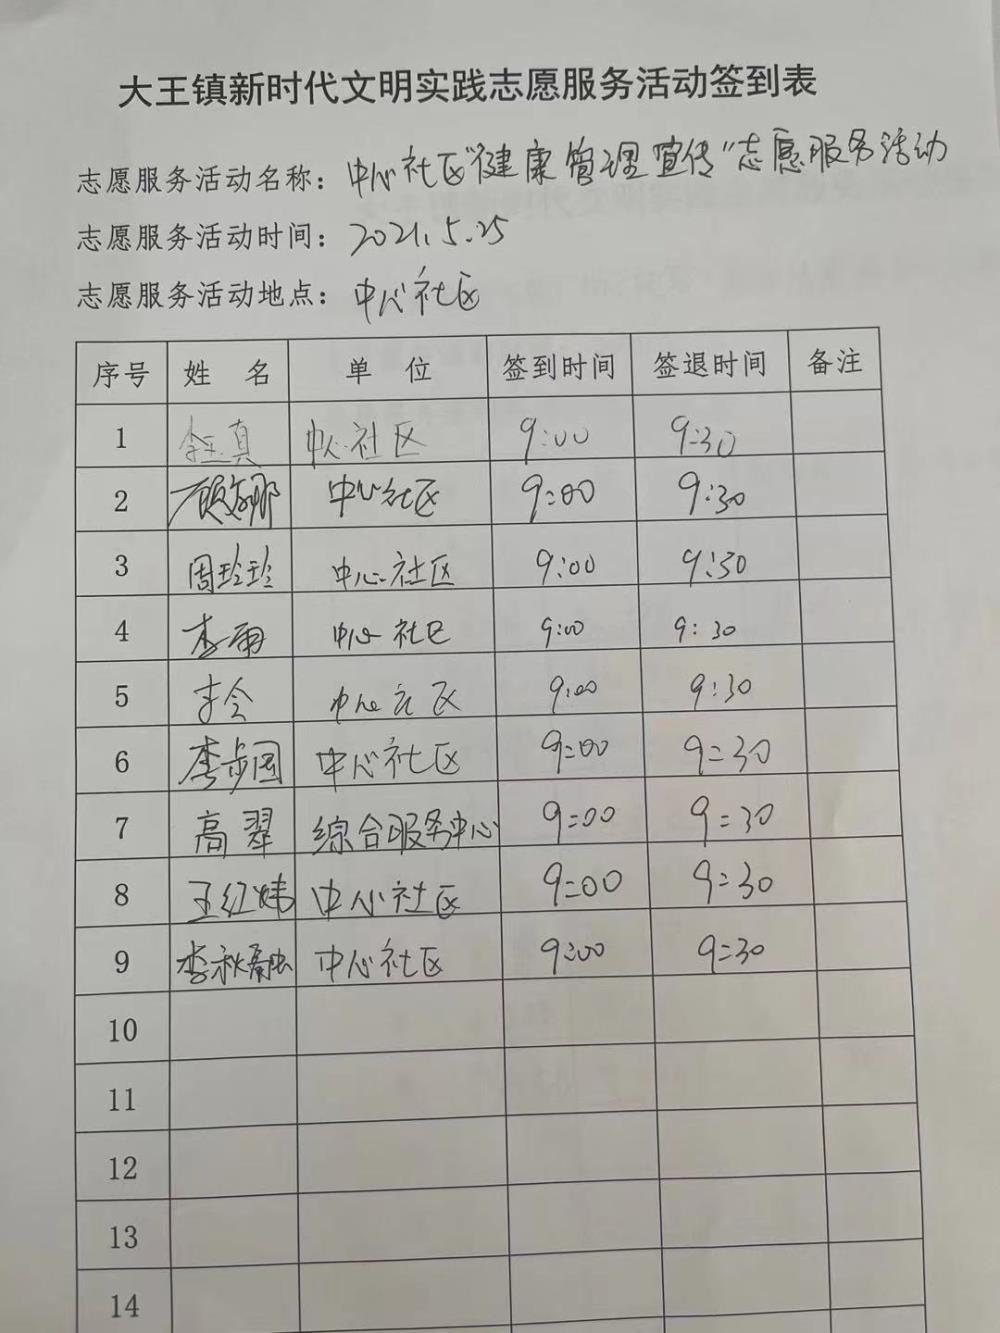 大王镇新时代文明实践志愿服务活动签到表
志愿服务活动名称：中心社区“健康管理宣传”志愿服务活动
志愿服务活动时间：2021.5.25
志愿服务活动地点：中心社区
序号 姓 名 单 位 签到时间 签退时间 备注
1 李玉真 中心社区 9:00 9:30
2 顾 娜 中心社区 9:00 9:30
3 周玲玲 中心社区 9:00 9:30
4 李雨 中心社区 9:00 9:30
5 李会 中心社区 9:00 9:30
6 李步国 中心社区 9:00 9:30
7 高翠 综合服务中心 9:00 9:30
8 王红 中心社区 9:00 9:30
9 李秋 中心社区 9:00 9:30
10
11
12
13
14